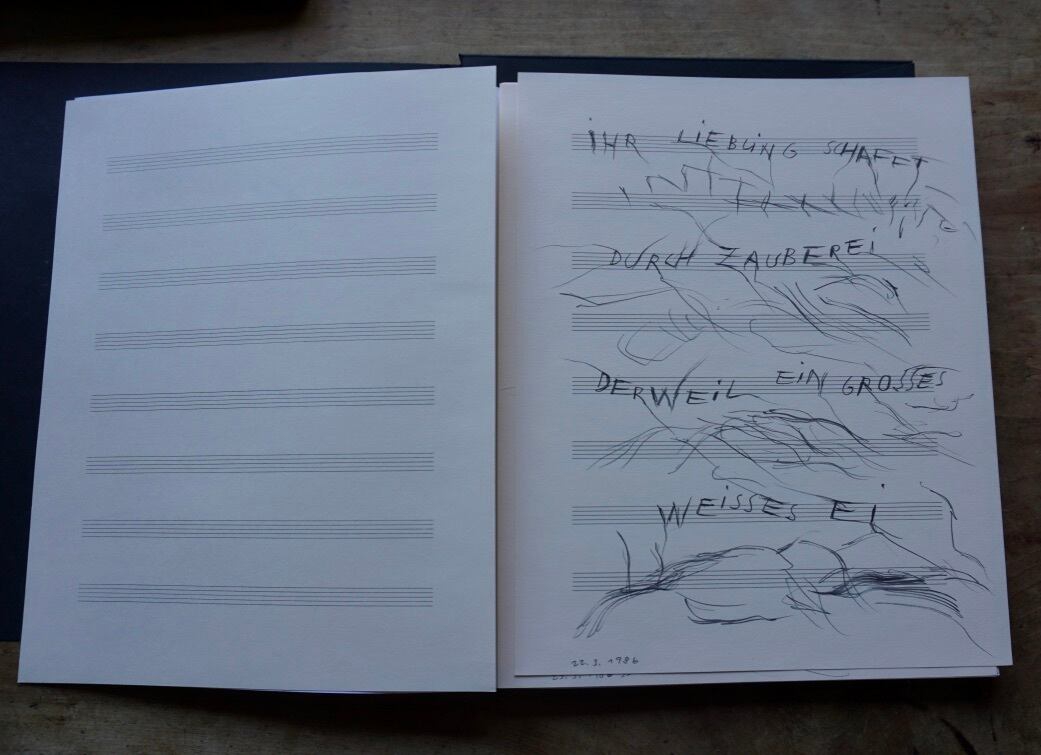 iHR LiEBLiNG SCHAFFT
DURCH ZAUBEREi
DERWEiL EiN GROSSES
WEiSSES Ei
22.3.1986